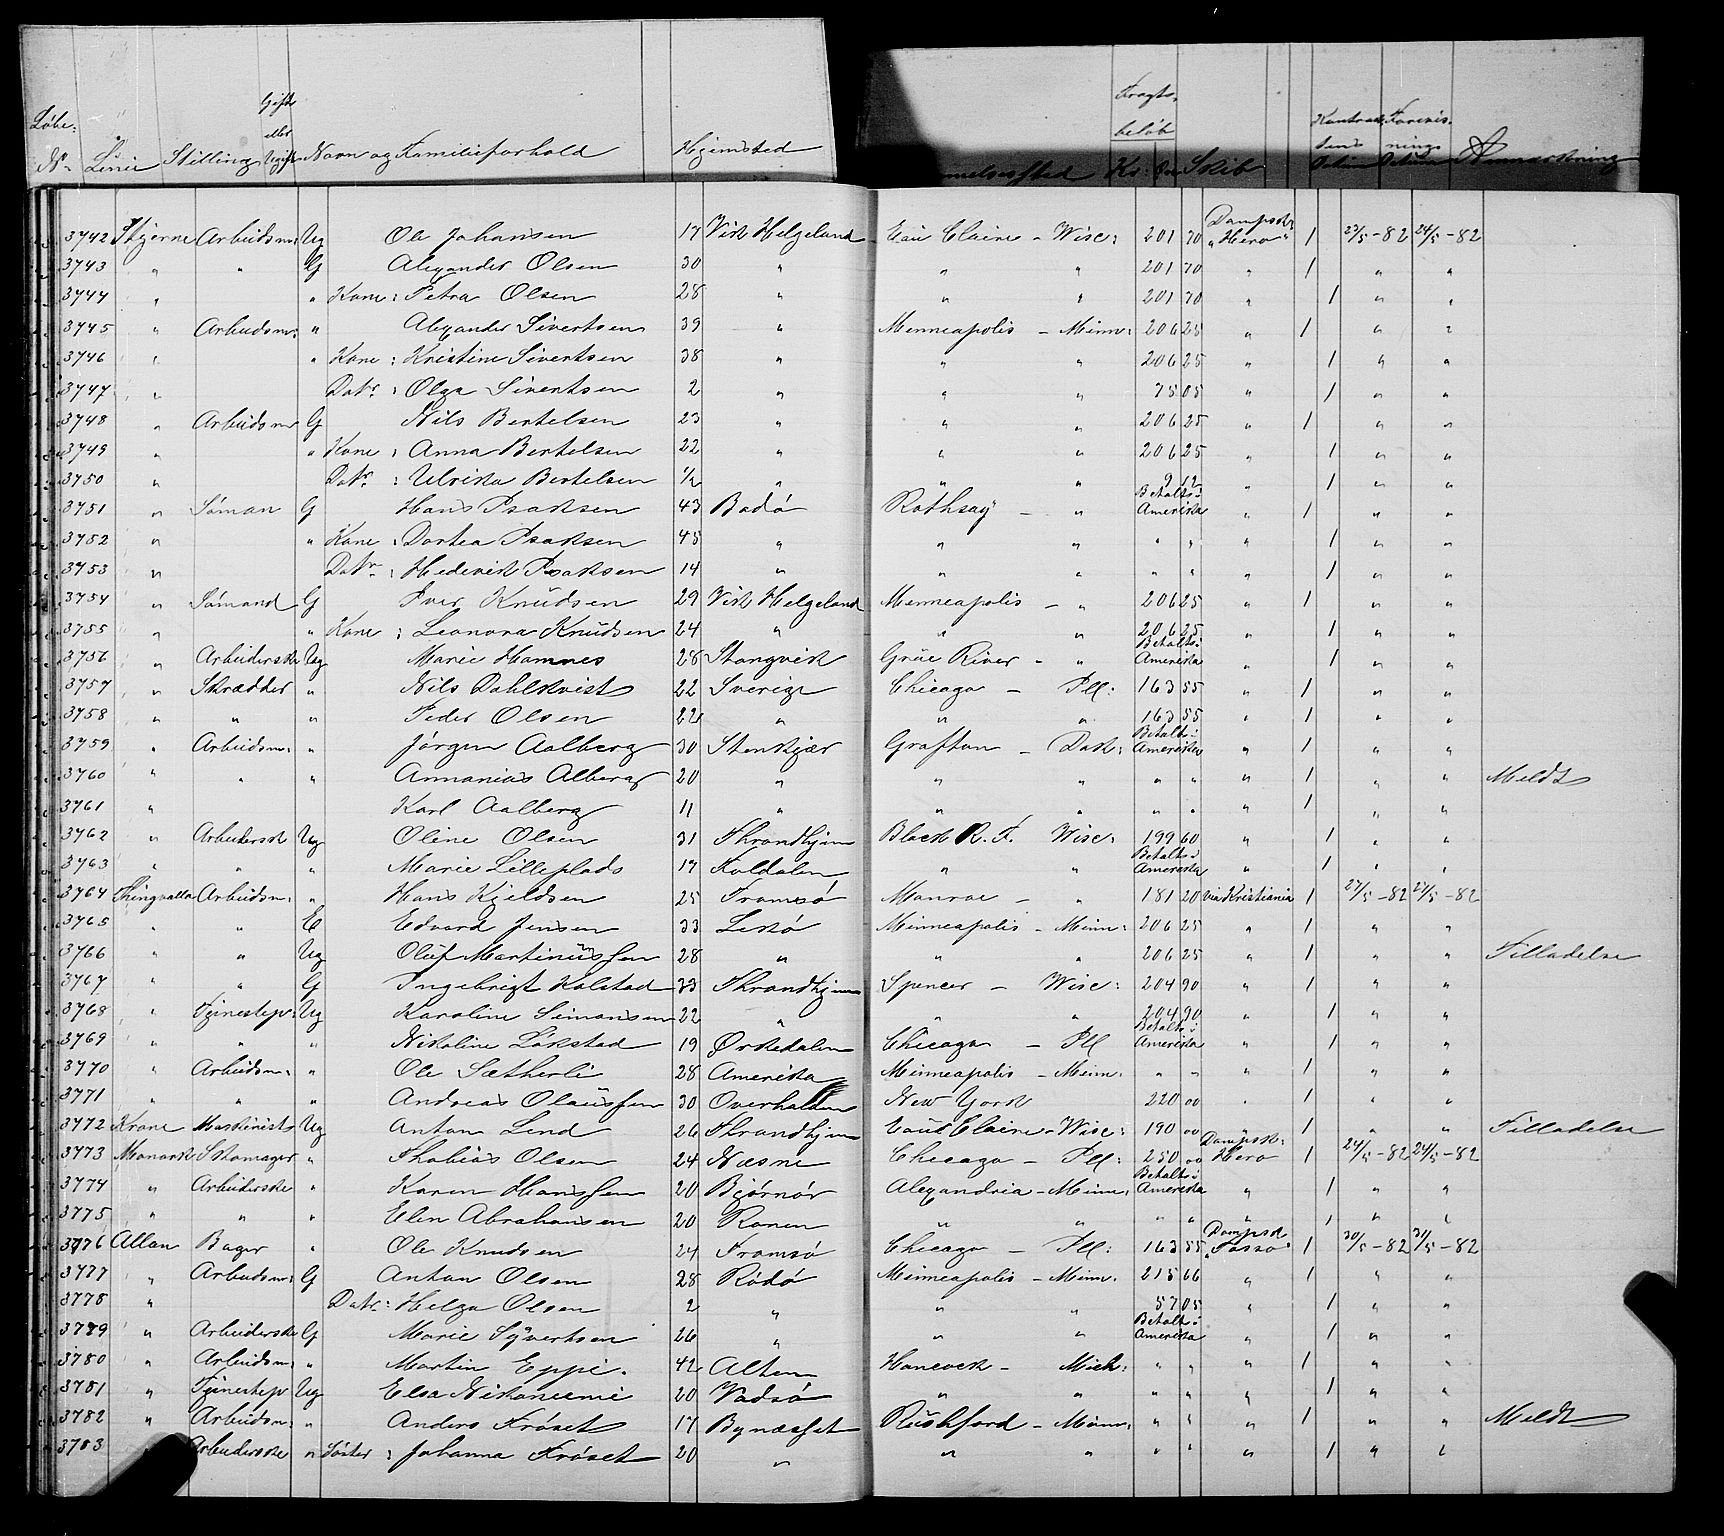 Løbe: No Linie Stilling Gift eller Ugift Navn og Familieforhold Hjemsted Fragtbeløb Kr: Skib Anmærkning
3742 Stjerne Arbeidsm: Ug Ole Johansen 17 Vik Helgeland Eau Claire - Wisc: 201 70 Dampsk: "Hero" 1 23/5-82 24/5-82
3743 " " G Alexander Olsen 30 " " " 201 70 " 1 " "
3744 " " Kone: Petra Olsen 28 " " " 201 70 " 1 " "
3745 " Arbeidsm: " Alexander Sivertsen 39 " Minneapolis - Minn: 206 25 " 1 " "
3746 " " Kone: Kristine Sivertsen 38 " " " 206 25 " 1 " "
3747 " Datr: Olga Sivertsen 2 " " " 75 05 " 1 " "
3748 " Arbeidsm G Nils Bertelsen 23 " " " 206 25 " 1 " "
3749 " " Kone: Anna Bertelsen 22 " " " 206 25 " 1 " "
3750 " Datr: Ulrika Bertelsen 1/2 " " " 9 12 " 1 " "
3751 " Søman G Hans Isaksen 43 Bodø Rothsay - " Betalt i Amerika " 1 " "
3752 " " Kone: Dortea Isaksen 45 " " " " " " 1 " "
3753 " Datr: Hedevik Isaksen 14 " " " " " " 1 " "
3754 " Sømand G Iver Knudsen 29 Vik Helgeland Minneapolis - " 206 25 " 1 " "
3755 " " Kone: Leonora Knudsen 24 " " " 206 25 " 1 " "
3756 " Arbeiderske Ug Marie Hamnes 28 Stangvik Grue River - " Betalt i Amerika " 1 " "
3757 " Skrædder " Nils Dahlkvist 22 Sverige Chicago - Ill: 163 55 " 1 " "
3758 " " " Peder Olsen 22 " " " 163 55 " 1 " "
3759 " Arbeidsm: " Jørgen Aalberg 30 Stenkjær Grafton - Dak: Betalt i Amerika " 1 " "
3760 " " " Annanias Alberg 20 " " " " " " 1 " " Meldt
3761 " Karl Aalberg 11 " " " " " " 1 " "
3762 " Arbeidersk Ug Oline Olsen 31 Throndhjem Black R. F. Wisc: 199 60 " 1 " "
3763 " " " Marie Lilleplads 17 Koldalen " " Betalt i Amerika " 1 " "
3764 Thingvalla Arbeidsm: " Hans Kjeldsen 25 Tromsø Monroe - " 181 20 via Kristiania 1 27/5-82 27/5-82
3765 " " E Edvard Jensen 33 Leksø Minneapolis - Minn: 206 25 " 1 " "
3766 " " Ug Oluf Martinussen 28 " " " 206 25 " 1 " " Tilladelse
3767 " " G Ingebrigt Kolstad 33 Throndhjem Spencer - Wisc: 204 90 " 1 " "
3768 " Tjenestep: Ug Karoline Simonsen 22 " " " 204 90 " 1 " "
3769 " " " Nikoline Løkstad 19 Ørkedalen Chicago - Ill Betalt i Amerika " 1 " "
3770 " Arbeidsm: " Ole Sætherli 28 Amerika Minneapolis - Minn: " " " 1 " "
3771 " " " Andreas Olaussen 30 Overhalden New York 220 00 " 1 " "
3772 Krone Maskinist Ug Anton Lind 26 Throndhjem Eau Claire - Wisc: 190 00 " 1 " " Tilladelse
3773 Monark Skomager " Thobias Olsen 24 Næsne Chicago - Ill: 250 00 Dampsk: Hero 1 24/5-82 24/5-82
3774 " Arbeiderske " Karen Hanssen 20 Bjørnør Alexandria - Minn: Betalt i Amerika " 1 " "
3775 " " " Elen Abrahansen 20 Ranen " " " " " 1 " "
3776 Allan Bager " Ole Knudsen 24 Tromsø Chicago - Ill: 163 55 Dampsk "Tasso" 1 30/5-82 31/5-82
3777 " Arbeidsm: G Anton Olsen 28 Rødø Minneapolis - Minn: 215 66 " 1 " "
3778 " Datr: Helga Olsen 2 " " " 57 05 " 1 " "
3779 " Arbeiderske G Marie Syvertsen 26 " " " Betalt i Amerika " 1 " "
3780 " Arbeidsm: " Martin Eppi. 42 Alten Hancock - Mich: " " " 1 " "
3781 " Tjenestep Ug Elsa Nikaniemi 20 Vadsø " " " " " 1 " "
3782 " Arbeidsm: " Anders Frøset 17 Bynæsset Rushford - Minn: " " " 1 " " Meldt
3783 Arbeiderske " Søster: Johanna Frøset 20 " " " " " " 1 " "